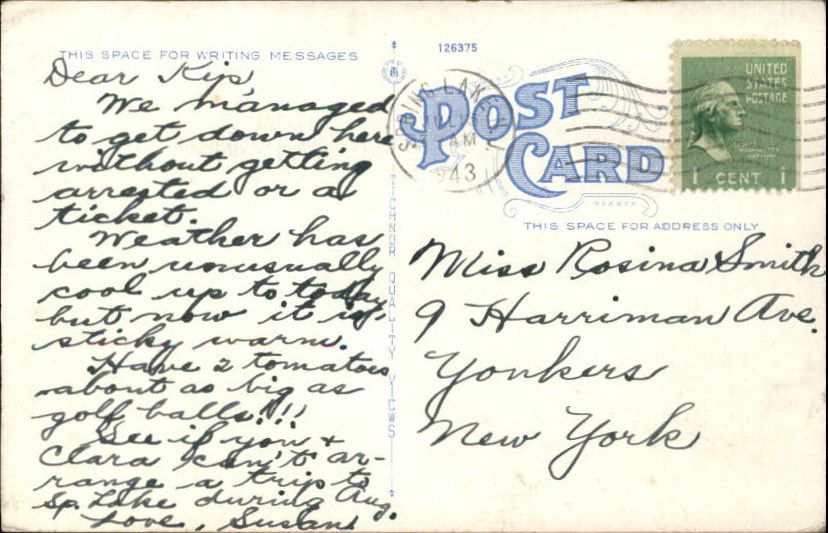 THIS SPACE FOR WRITING MESSAGES
Dear Kip
We managed
to get down here
without getting
arrested or a
ticket.
Weather has
been unusually
cool up to today
but now it is
sticky warm.
Have 2 tomatoes
about as big as
golf balls!!!
See if you +
Clara can't ar-
range a trip to
Sp. Lake during Aug.
Love, Susan
126375
POST
CARD
TICHNOR QUALITY VIEWS
SPRING LAKE
AM
1943
UNITED
STATES
POSTAGE
1 CENT 1
THIS SPACE FOR ADDRESS ONLY
Miss Rosina Smith
9 Harriman Ave.
Yonkers
New York